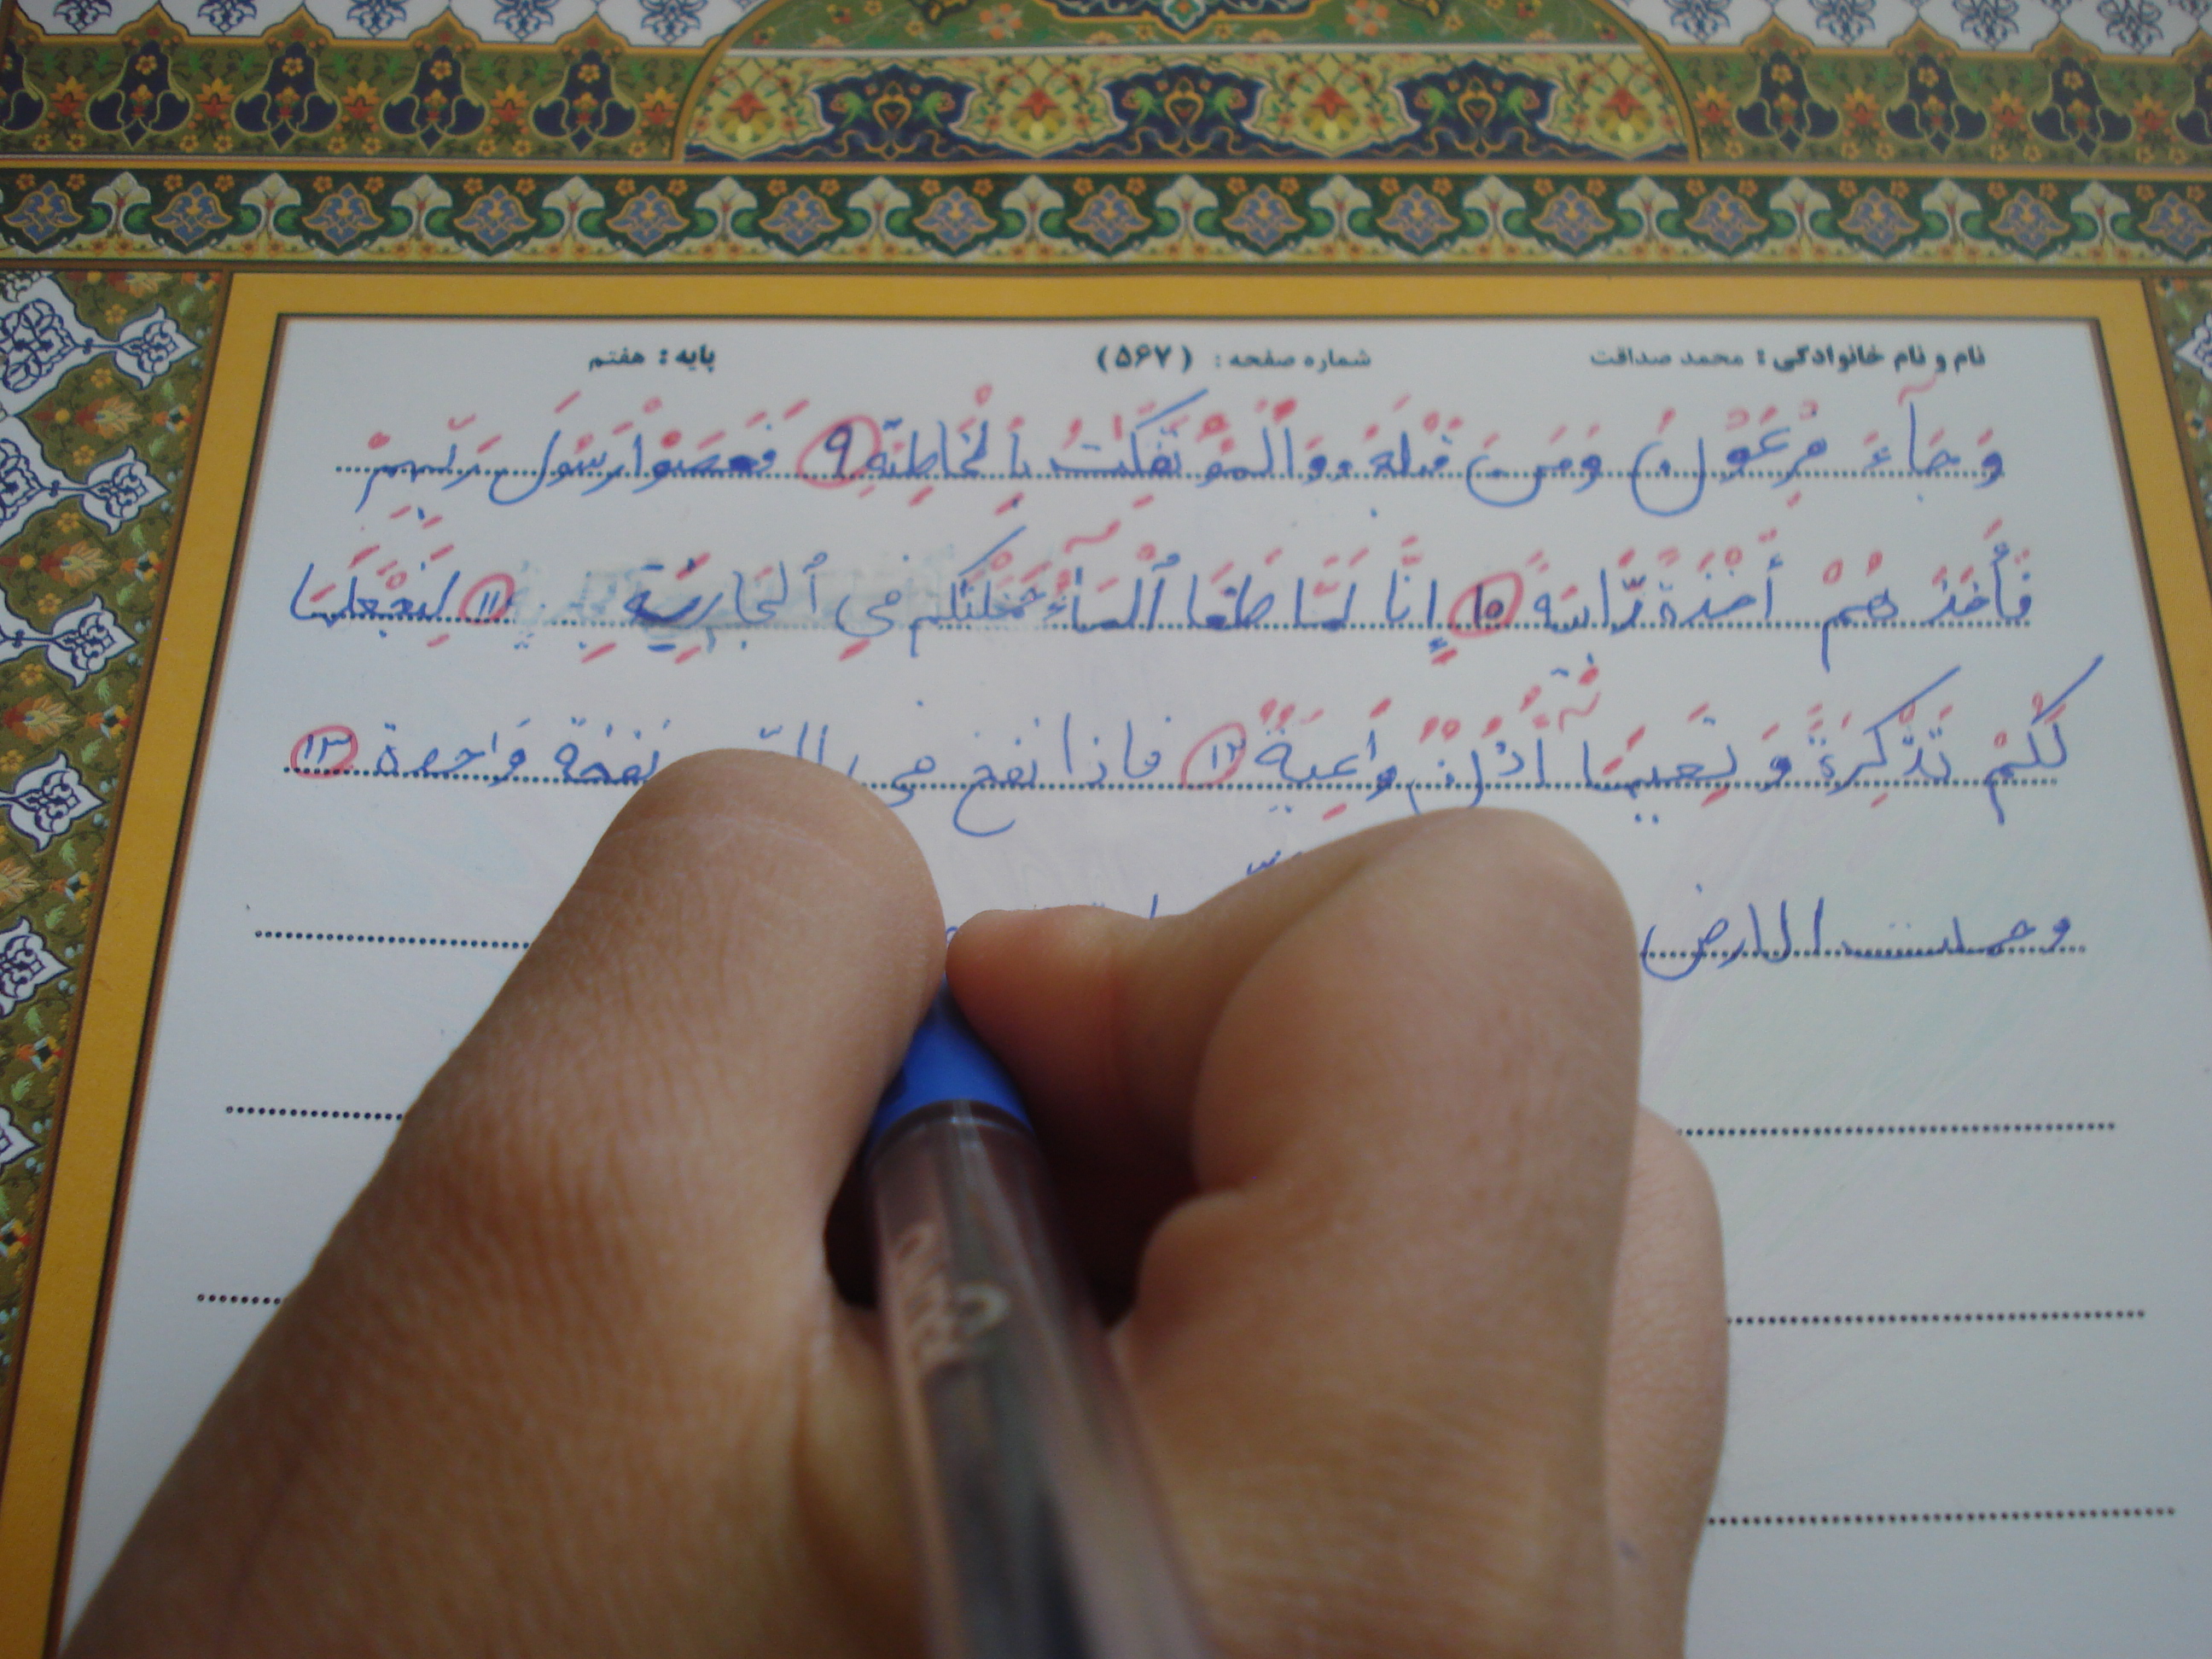 نام و نام خانوادگی : محمد صداقت شماره صفحه : (۵۶۷) پایه : هفتم
وَ جَآءَ فِرْعَوْنُ وَمَن قَبْلَهُ وَالْمُؤْتَفِكَتُ بِالْخَاطِئَةِ ۹ فَعَصَوْا رَسُولَ رَبِّهِمْ
فَأَخَذَهُمْ أَخْذَةً رَّابِيَةً ۱۰ إِنَّا لَمَّا طَغَا ٱلْمَآءُ حَمَلْنَكُم فِي ٱلْجَارِيَةِ ۱۱ لِنَجْعَلَهَا
لَكُمْ تَذْكِرَةً وَ تَعِيَهَا أُذُنٌ وَاعِيَةٌ ۱۲ فاذا نفخ فی نفخة واحدة ۱۳
وحملت الارض